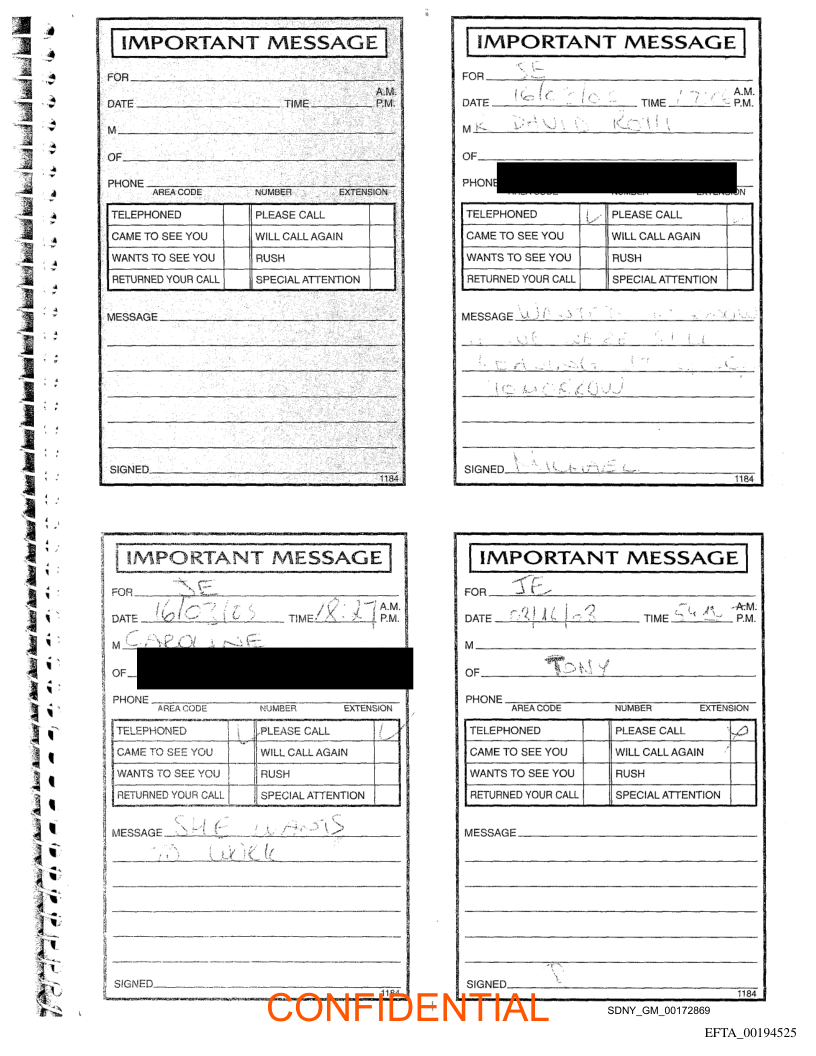 IMPORTANT MESSAGE
FOR
A.M.
DATE TIME P.M.
M
OF
PHONE
AREA CODE NUMBER EXTENSION
TELEPHONED PLEASE CALL
CAME TO SEE YOU WILL CALL AGAIN
WANTS TO SEE YOU RUSH
RETURNED YOUR CALL SPECIAL ATTENTION
MESSAGE
SIGNED
1184
IMPORTANT MESSAGE
FOR JE
A.M.
DATE TIME P.M.
MR DAVID
OF
PHONE
TELEPHONED PLEASE CALL
CAME TO SEE YOU WILL CALL AGAIN
WANTS TO SEE YOU RUSH
RETURNED YOUR CALL SPECIAL ATTENTION
MESSAGE WANTED TO KNOW
WE WERE STILL
TOMORROW
SIGNED MICHAEL
1184
IMPORTANT MESSAGE
FOR JE
A.M.
DATE 16/03/05 TIME 18:27 P.M.
M CAROLINE
OF
PHONE
AREA CODE NUMBER EXTENSION
TELEPHONED PLEASE CALL
CAME TO SEE YOU WILL CALL AGAIN
WANTS TO SEE YOU RUSH
RETURNED YOUR CALL SPECIAL ATTENTION
MESSAGE SHE WANTS
TO WORK
SIGNED
1184
IMPORTANT MESSAGE
FOR JE
A.M.
DATE TIME P.M.
M
OF TONY
PHONE
AREA CODE NUMBER EXTENSION
TELEPHONED PLEASE CALL
CAME TO SEE YOU WILL CALL AGAIN
WANTS TO SEE YOU RUSH
RETURNED YOUR CALL SPECIAL ATTENTION
MESSAGE
SIGNED
1184
CONFIDENTIAL
SDNY_GM_00172869
EFTA_00194525